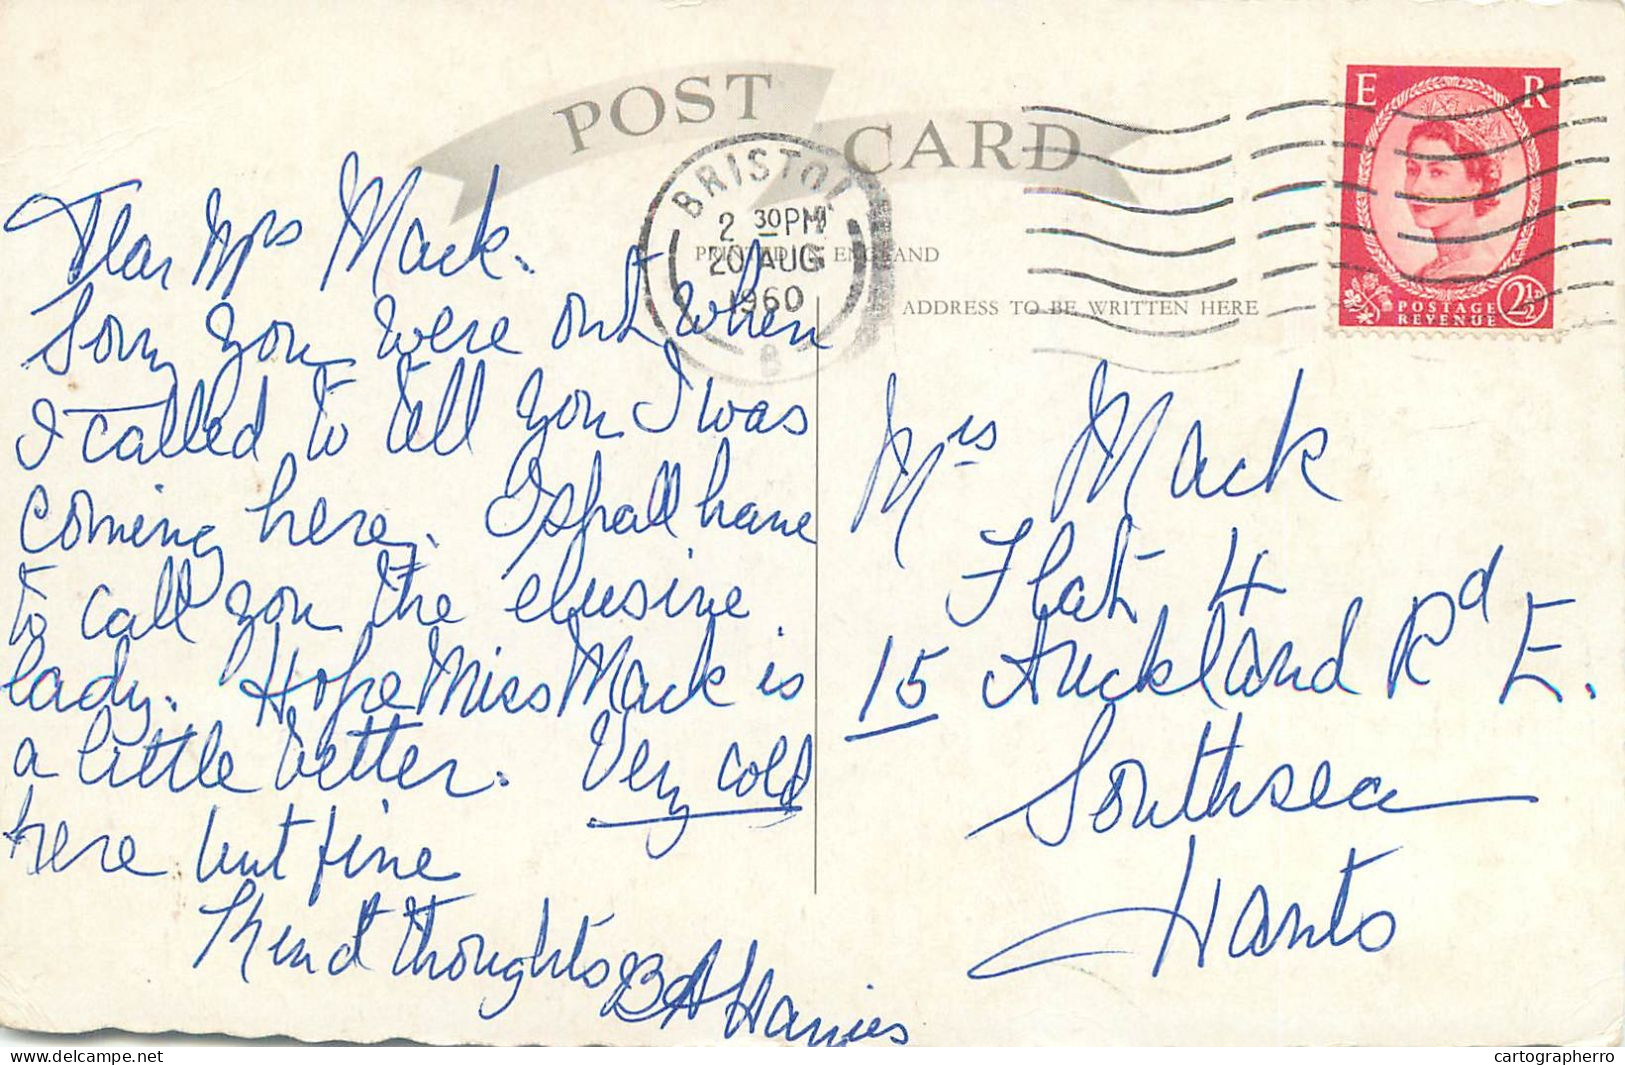 POST CARD
BRISTOL
2 30PM
20 AUG
1960
B
PRINTED IN ENGLAND
ADDRESS TO BE WRITTEN HERE
E R
POSTAGE
REVENUE
2½
Dear Mrs Mack.
Sorry you were out when
I called to tell you I was
coming here. I shall have
to call you the elusive
lady. Hope Miss Mack is
a little better. Very cold
here but fine
Kind thoughts
Mrs Mack
Flat 4
15 Auckland Rd E.
Southsea
Hants
delcampe.net
cartographerro